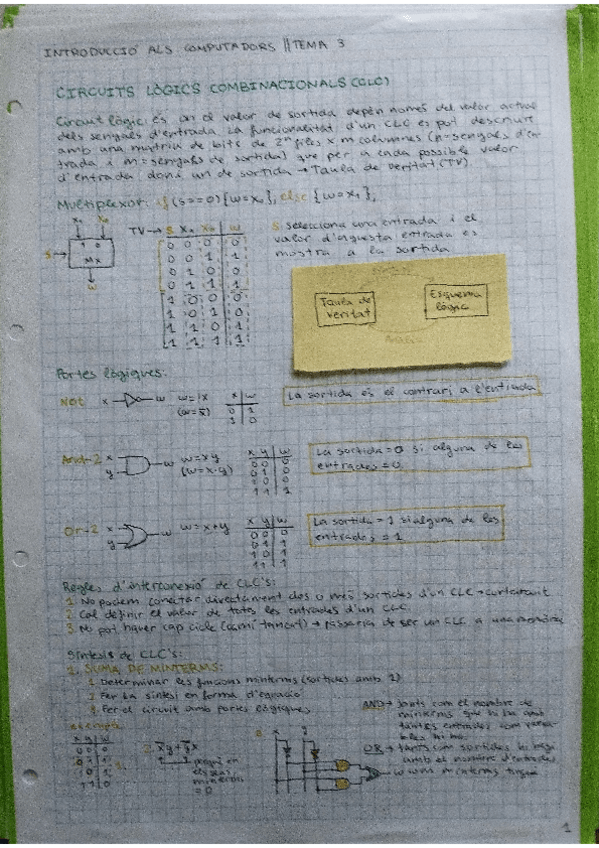 INTRODUCCIÓ ALS COMPUTADORS || TEMA 3
CIRCUITS LÒGICS COMBINACIONALS (CLC)
Circuit lògic és on el valor de sortida depèn només del valor actual
dels senyals d'entrada. La funcionalitat d'un CLC es pot descriure
amb una matriu de bits de 2ⁿ files x m columnes (n=senyals d'en-
trada i m=senyals de sortida) que per a cada possible valor
d'entrada dóna un de sortida → Taula de veritat (TV).
Multiplexor: if (s==0) {w=x₀}, else {w=x₁},
X₁ X₀
S
1 0
Mx
w
TV→ S X₁ X₀ w
0 0 0 0
0 0 1 1
0 1 0 0
0 1 1 1
1 0 0 0
1 0 1 0
1 1 0 1
1 1 1 1
S selecciona una entrada i el
valor d'aquesta entrada es
mostra a la sortida
Taula de
veritat
Esquema
lògic
Portes lògiques:
Not x w w=!x
(w=x̅)
x w
0 1
1 0
La sortida és el contrari a l'entrada
And-2 x y w w=xy
(w=x·y)
x y w
0 0 0
0 1 0
1 0 0
1 1 1
La sortida=0 si alguna de les
entrades=0
Or-2 x y w w=x+y
x y w
0 0 0
0 1 1
1 0 1
1 1 1
La sortida=1 si alguna de les
entrades=1
Regles d'interconexió de CLC's:
1. No podem conectar directament dos o més sortides d'un CLC → curtcircuit
2. Cal definir el valor de totes les entrades d'un CLC
3. No pot haver cap cicle (camí tancat) → passaria de ser un CLC a una memòria
Síntesis de CLC's:
1. SUMA DE MINTERMS:
1. Determinar les funcions minterms (sortides amb 1)
2. Fer la síntesi en forma d'equació
3. Fer el circuit amb portes lògiques
AND → tants com el nombre de
minterms que hi ha amb
tantes entrades com varia-
bles hi ha.
OR → tants com sortides hi hagi
amb el nombre d'entrades
minterms
exemple
x y w
0 0 0
0 1 1
1 0 1
1 1 0
w
1